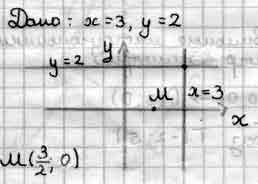 Дано: x=3, y=2
y
y=2
M
x=3
x
M(3/2; 0)